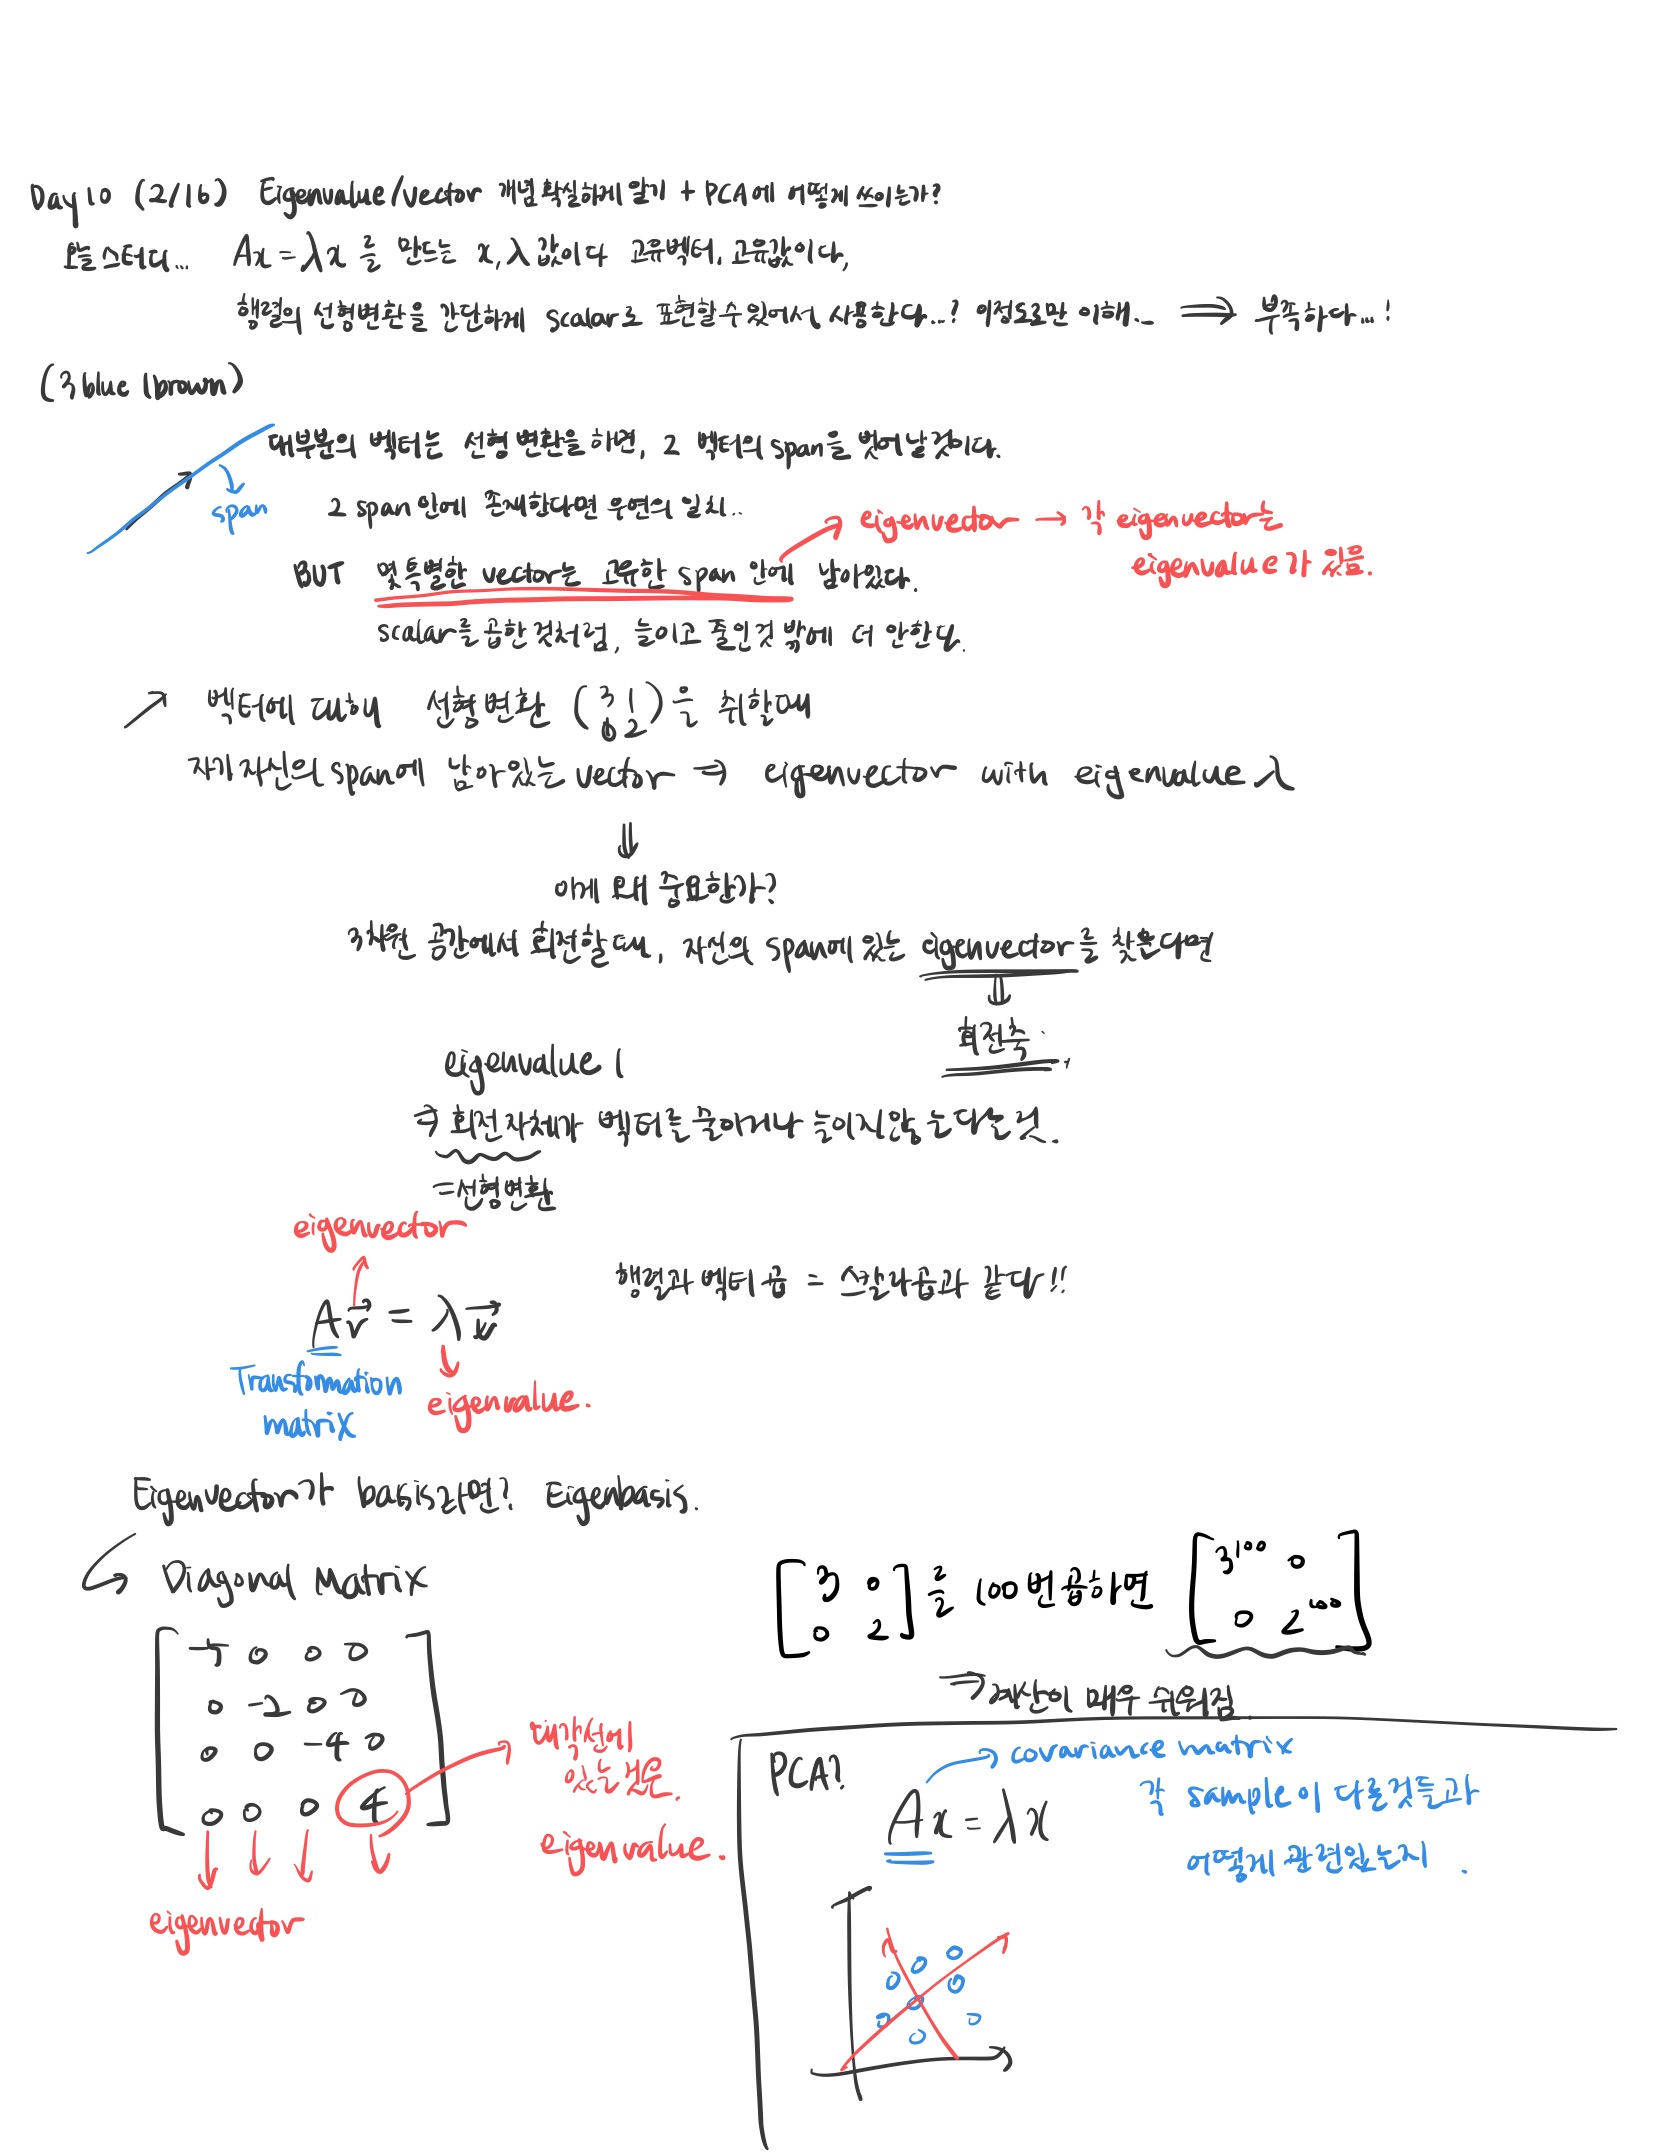 Day 10 (2/16) Eigenvalue/vector 개념 확실하게 알기 + PCA에 어떻게 쓰이는가?
오늘 스터디... Ax = λx 를 만드는 x, λ 값이다 고유벡터, 고유값이다,
행렬의 선형변환을 간단하게 scalar로 표현할수있어서 사용한다...? 이정도로만 이해... ⇒ 부족하다...!
(3 blue 1 brown)
대부분의 벡터는 선형 변환을 하면, 그 벡터의 span을 벗어날것이다.
span
그 span 안에 존재한다면 우연의 일치..
eigenvector → 각 eigenvector는
eigenvalue가 있음.
BUT 몇 특별한 vector는 고유한 span 안에 남아있다.
scalar를 곱한 것처럼, 늘이고 줄인것 밖에 더 안한다.
↗ 벡터에 대해 선형변환 (3 1
0 2) 을 취할때
자기자신의 span에 남아있는 vector ⇒ eigenvector with eigenvalue λ
⇓
이게 왜 중요한가?
3차원 공간에서 회전할때, 자신의 span에 있는 eigenvector를 찾는다면
⇓
회전축.
eigenvalue 1
⇒ 회전자체가 벡터를 줄이거나 늘이지않는다는것.
=선형변환
eigenvector
행렬과 벡터곱 = 스칼라곱과 같다!!
Av = λv
Transformation
matrix
eigenvalue.
Eigenvector가 basis라면? Eigenbasis.
Diagonal Matrix
-5 0 0 0
0 -2 0 0
0 0 -4 0
0 0 0 4
대각선에
있는것은
eigenvalue.
eigenvector
[3 0
0 2] 를 100번곱하면 [3¹⁰⁰ 0
0 2¹⁰⁰]
⇒계산이 매우 쉬워짐.
PCA?
covariance matrix
Ax = λx
각 sample이 다른것들과
어떻게 관련있는지.